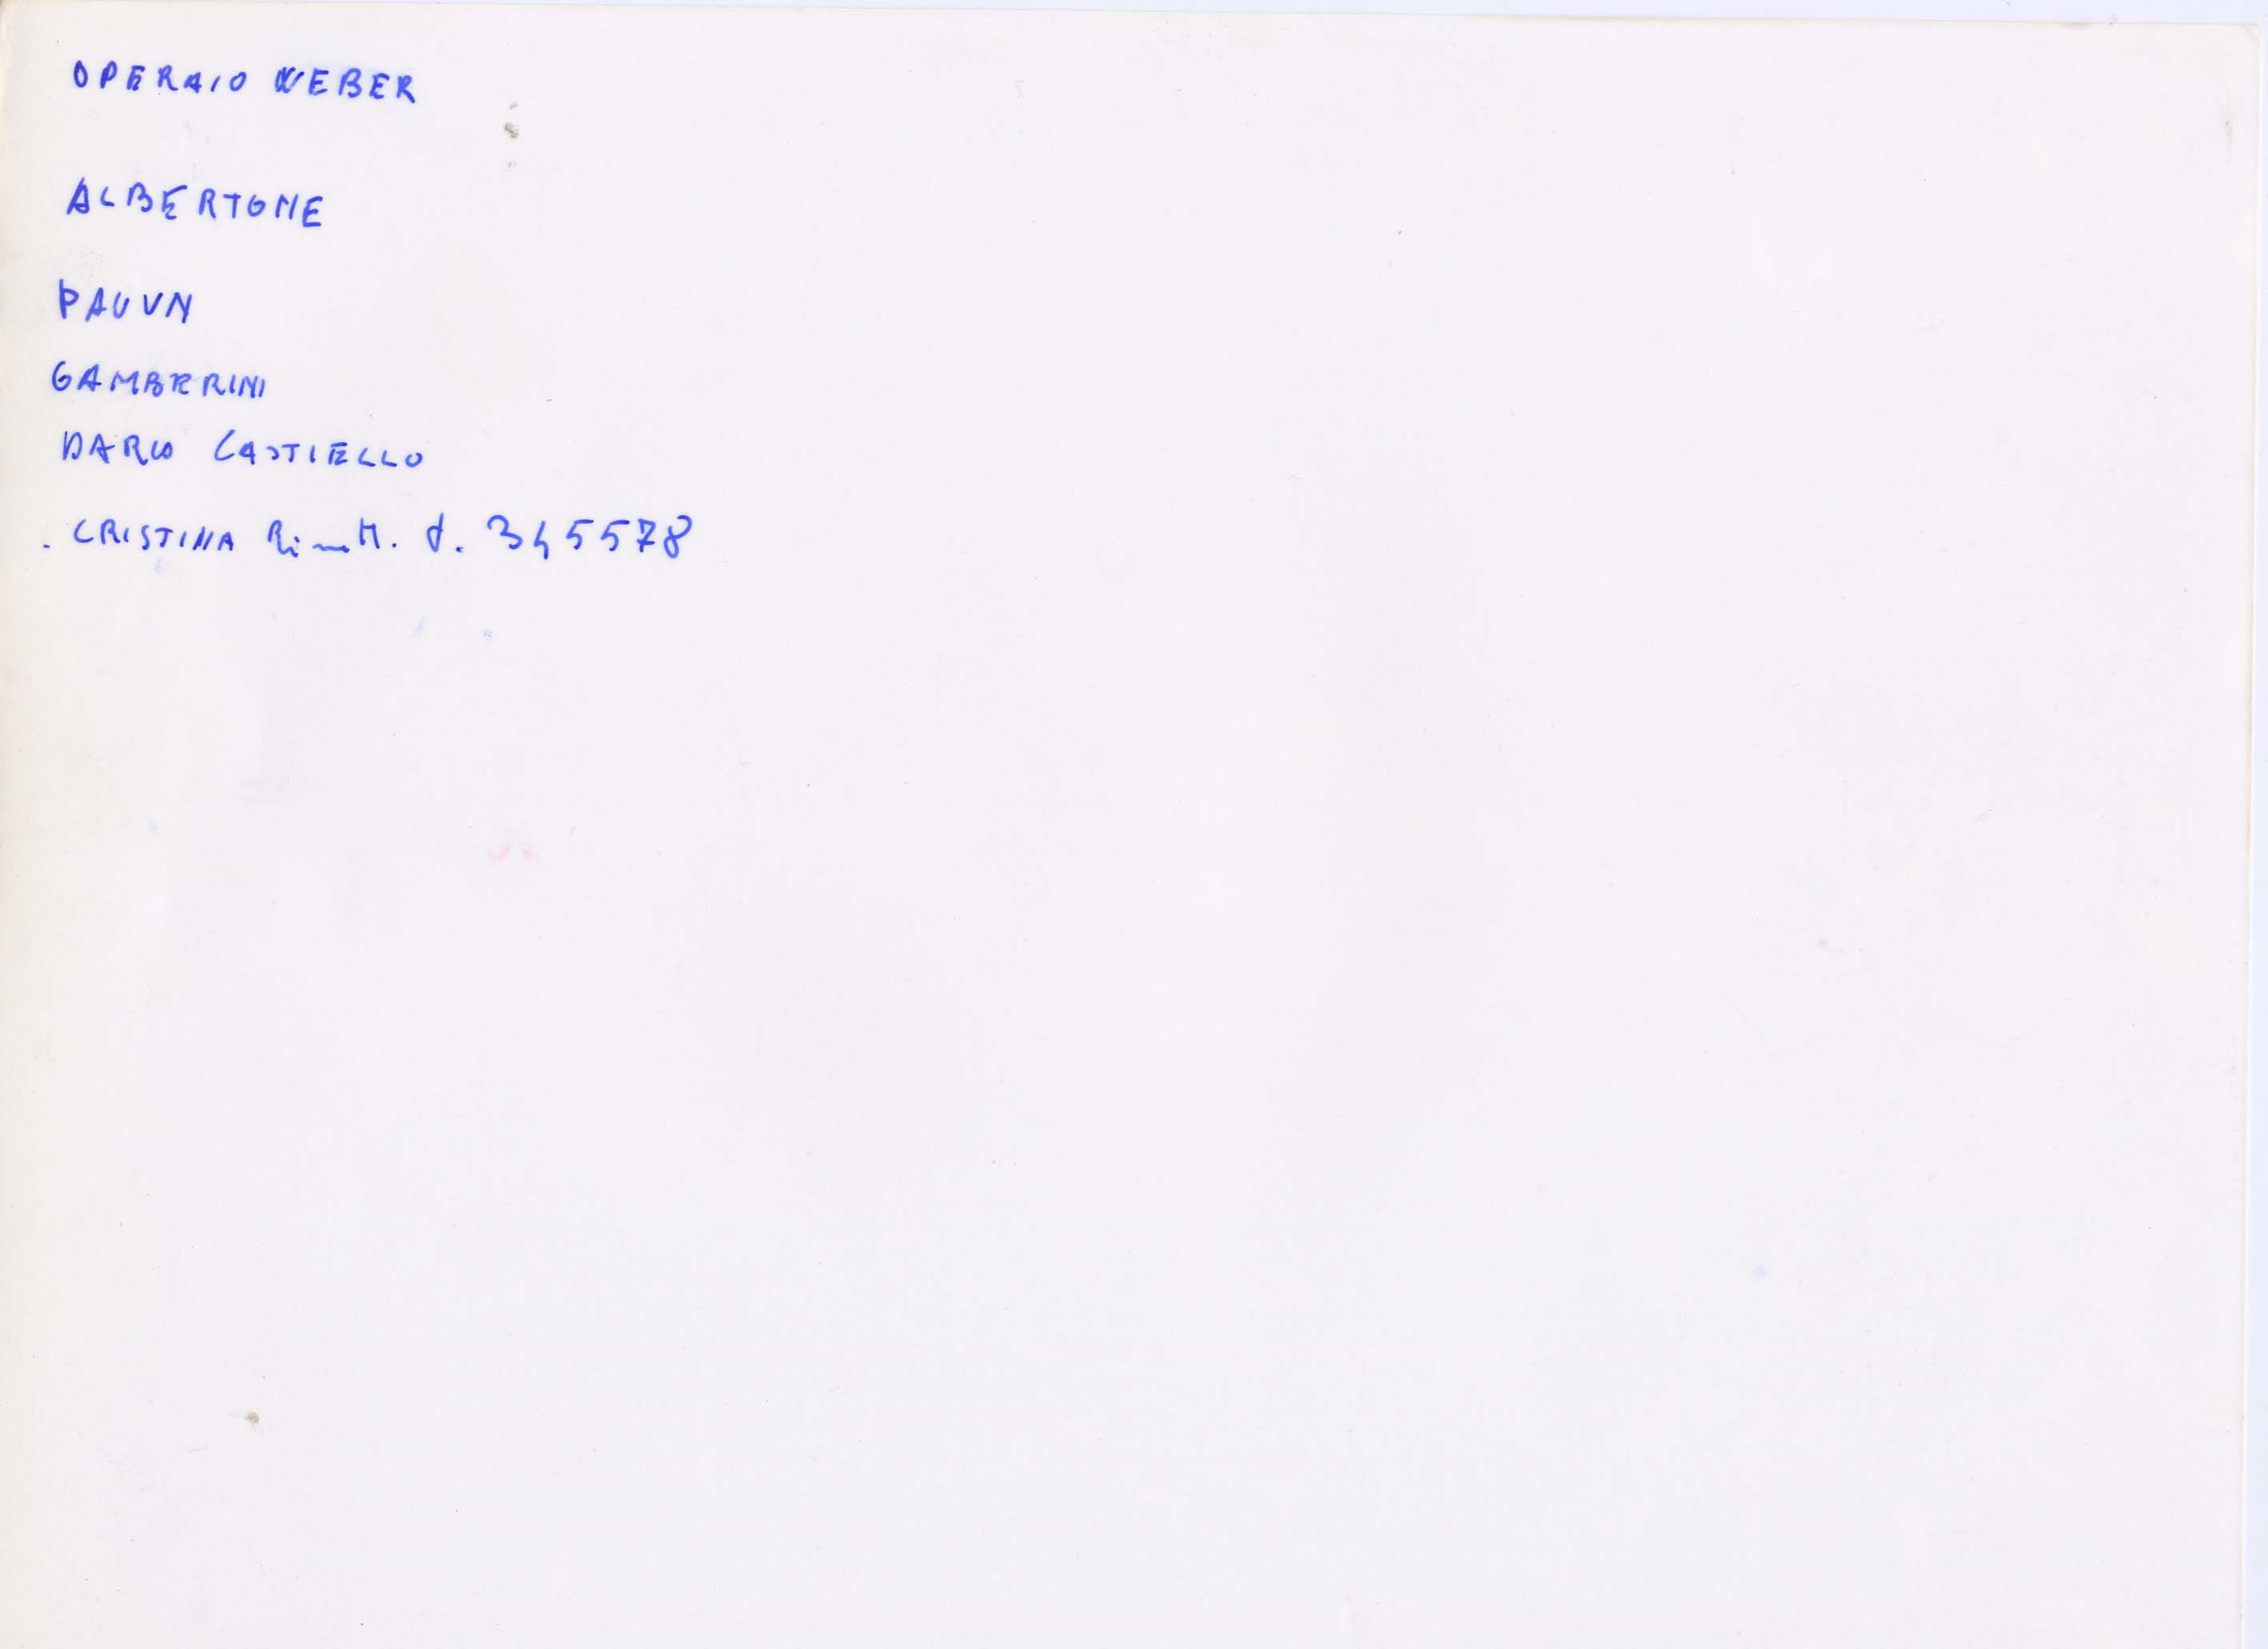 OPERAIO WEBER
ALBERTONE
PAUVN
GAMBERINI
DARIO CASTIELLO
. CRISTINA 345578